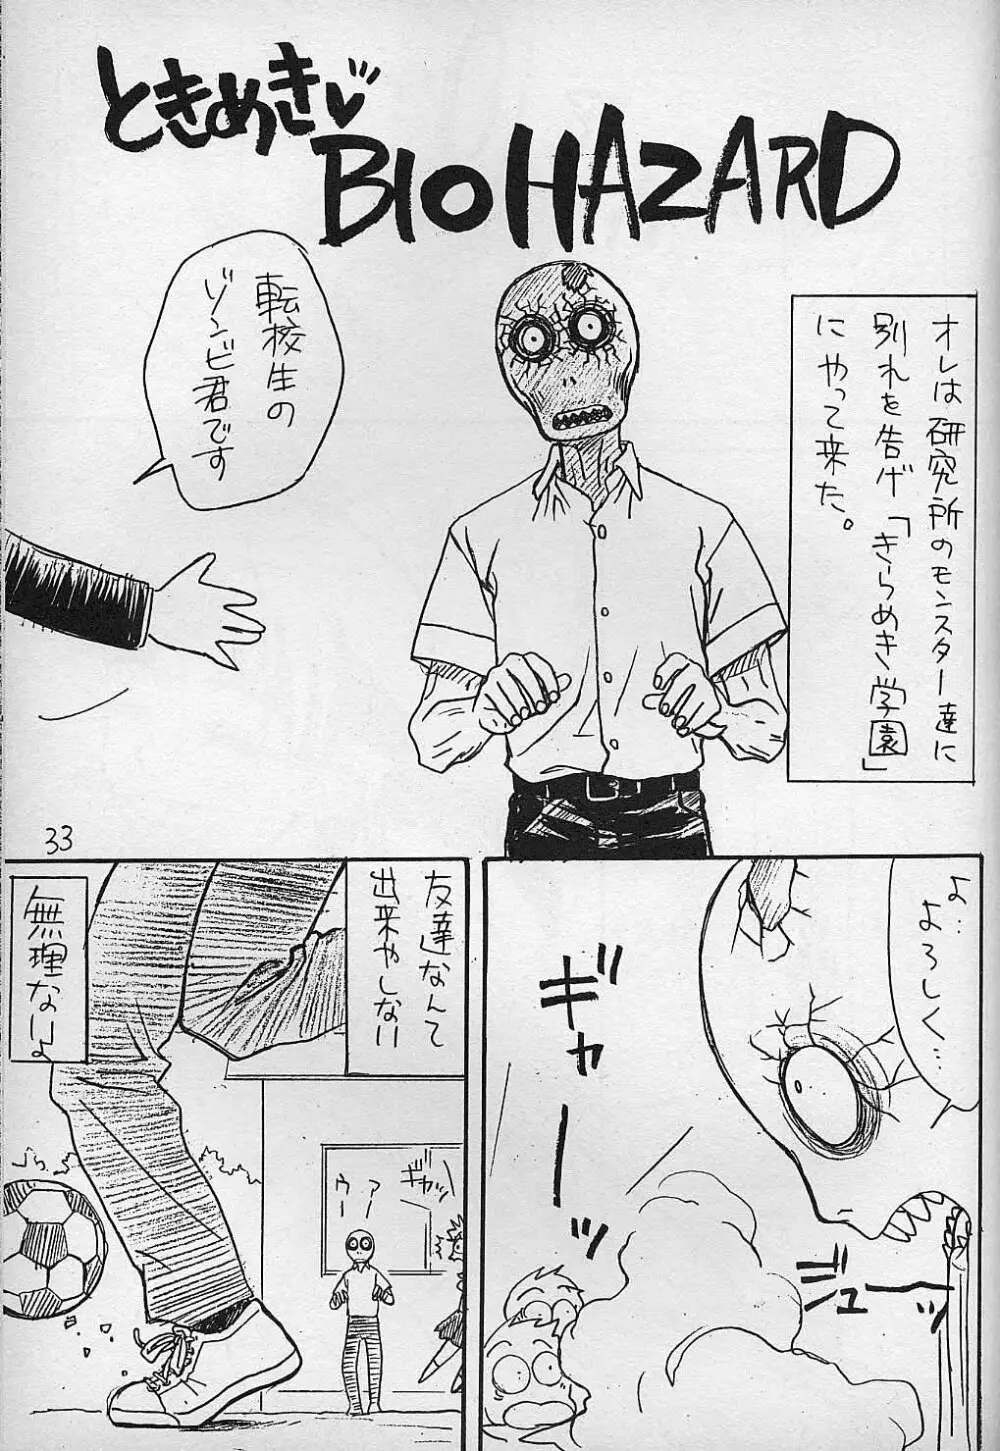 ときめき♥
BIOHAZARD
オレは研究所のモンスター達に
別れを告げ「きらめき学園」
にやって来た。
転校生の
ゾンビ君です
33
よ…
よろしく…
ギャーッ
ジューッ
友達なんて
出来やしない
無理ないよ
アー
ウー
ギャッ